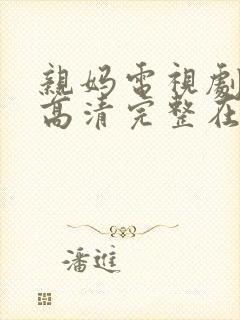 親妈電視劇
高清完整在
潘進